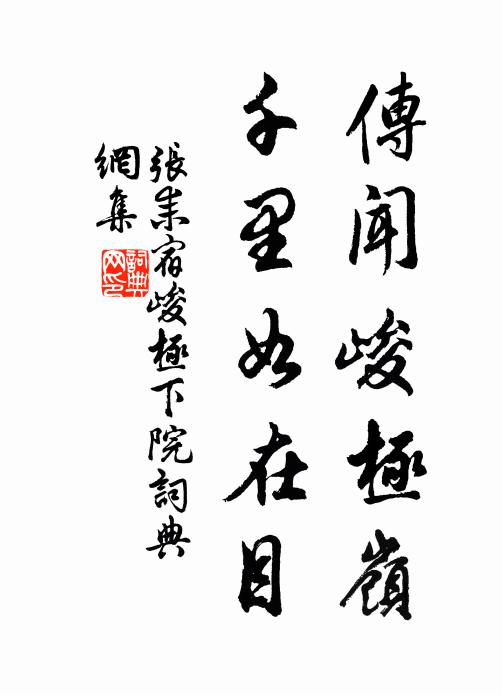 傳聞峻極嶺
千里如在目
張耒宿峻極下院詞典
網集
詞典
网印